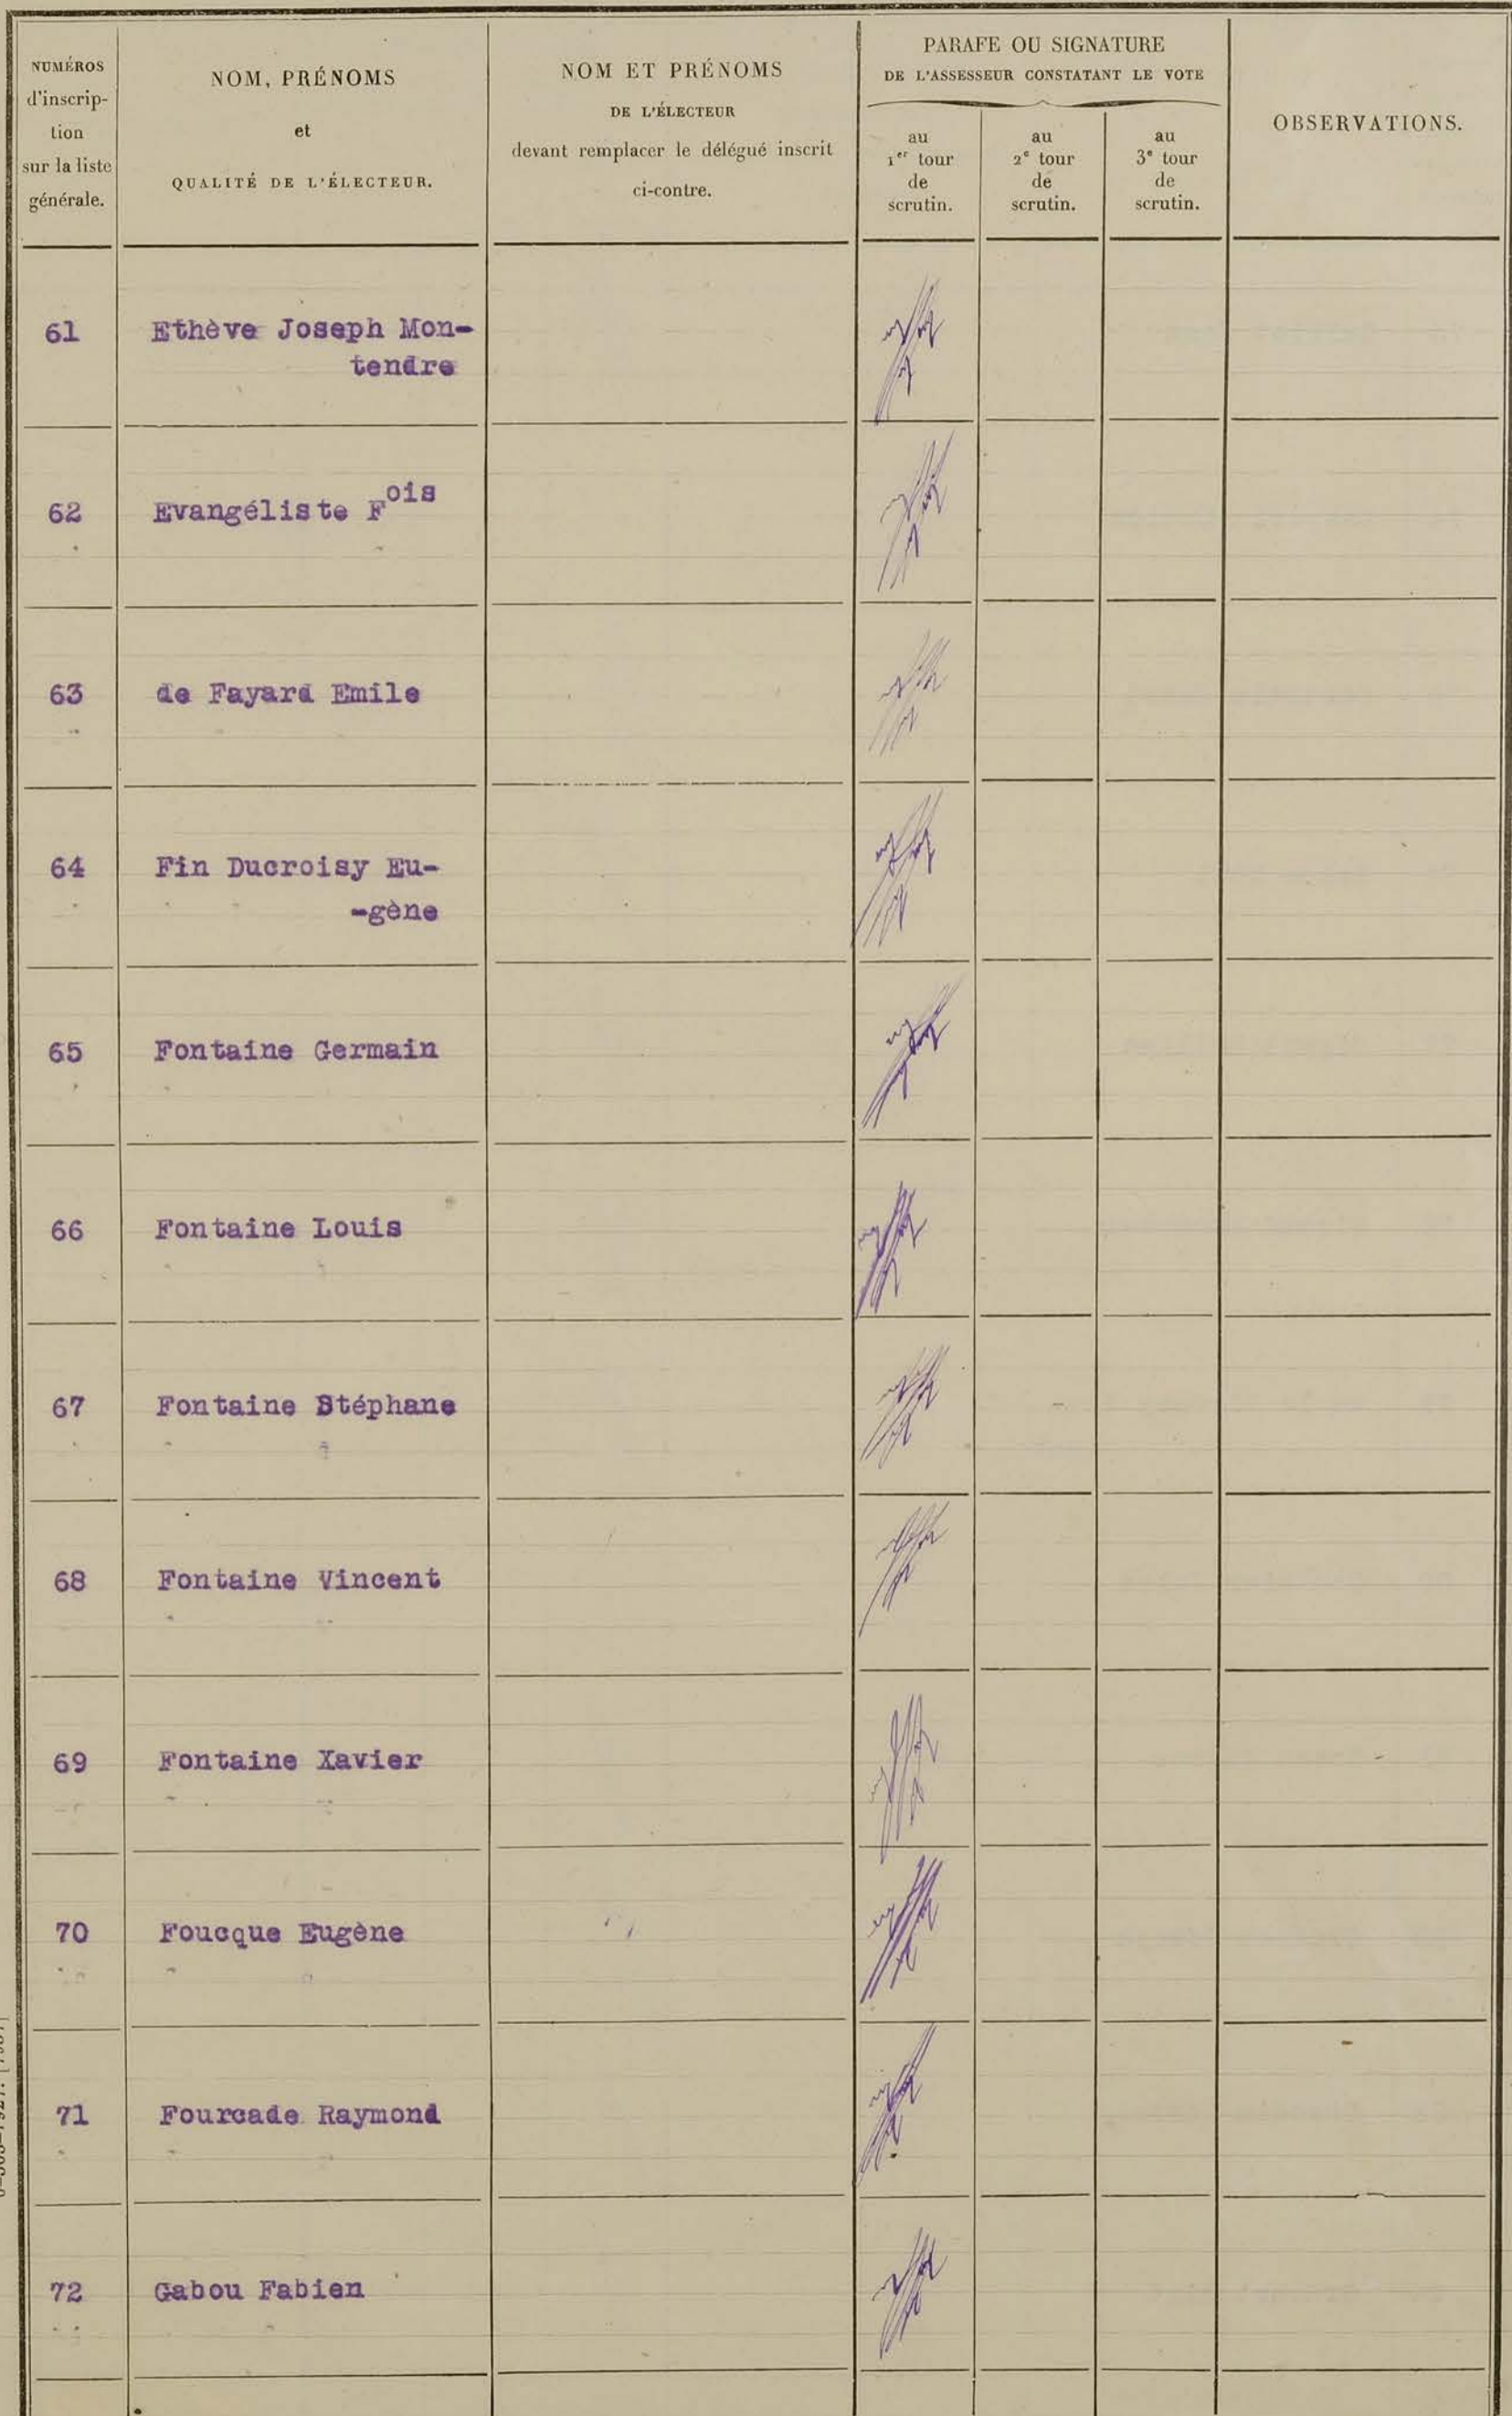 NUMÉROS
d'inscrip-
tion
sur la liste
générale.
NOM, PRÉNOMS
et
QUALITÉ DE L'ÉLECTEUR.
NOM ET PRÉNOMS
DE L'ÉLECTEUR
devant remplacer le délégué inscrit
ci-contre.
PARAFE OU SIGNATURE
DE L'ASSESSEUR CONSTATANT LE VOTE
au
1er tour
de
scrutin.
au
2e tour
de
scrutin.
au
3e tour
de
scrutin.
OBSERVATIONS.
61 Ethève Joseph Mon-
tendre
62 Evangéliste Fois
63 de Fayard Emile
64 Fin Ducroisy Eu-
-gène
65 Fontaine Germain
66 Fontaine Louis
67 Fontaine Stéphane
68 Fontaine Vincent
69 Fontaine Xavier
70 Foucque Eugène
71 Fourcade Raymond
72 Gabou Fabien